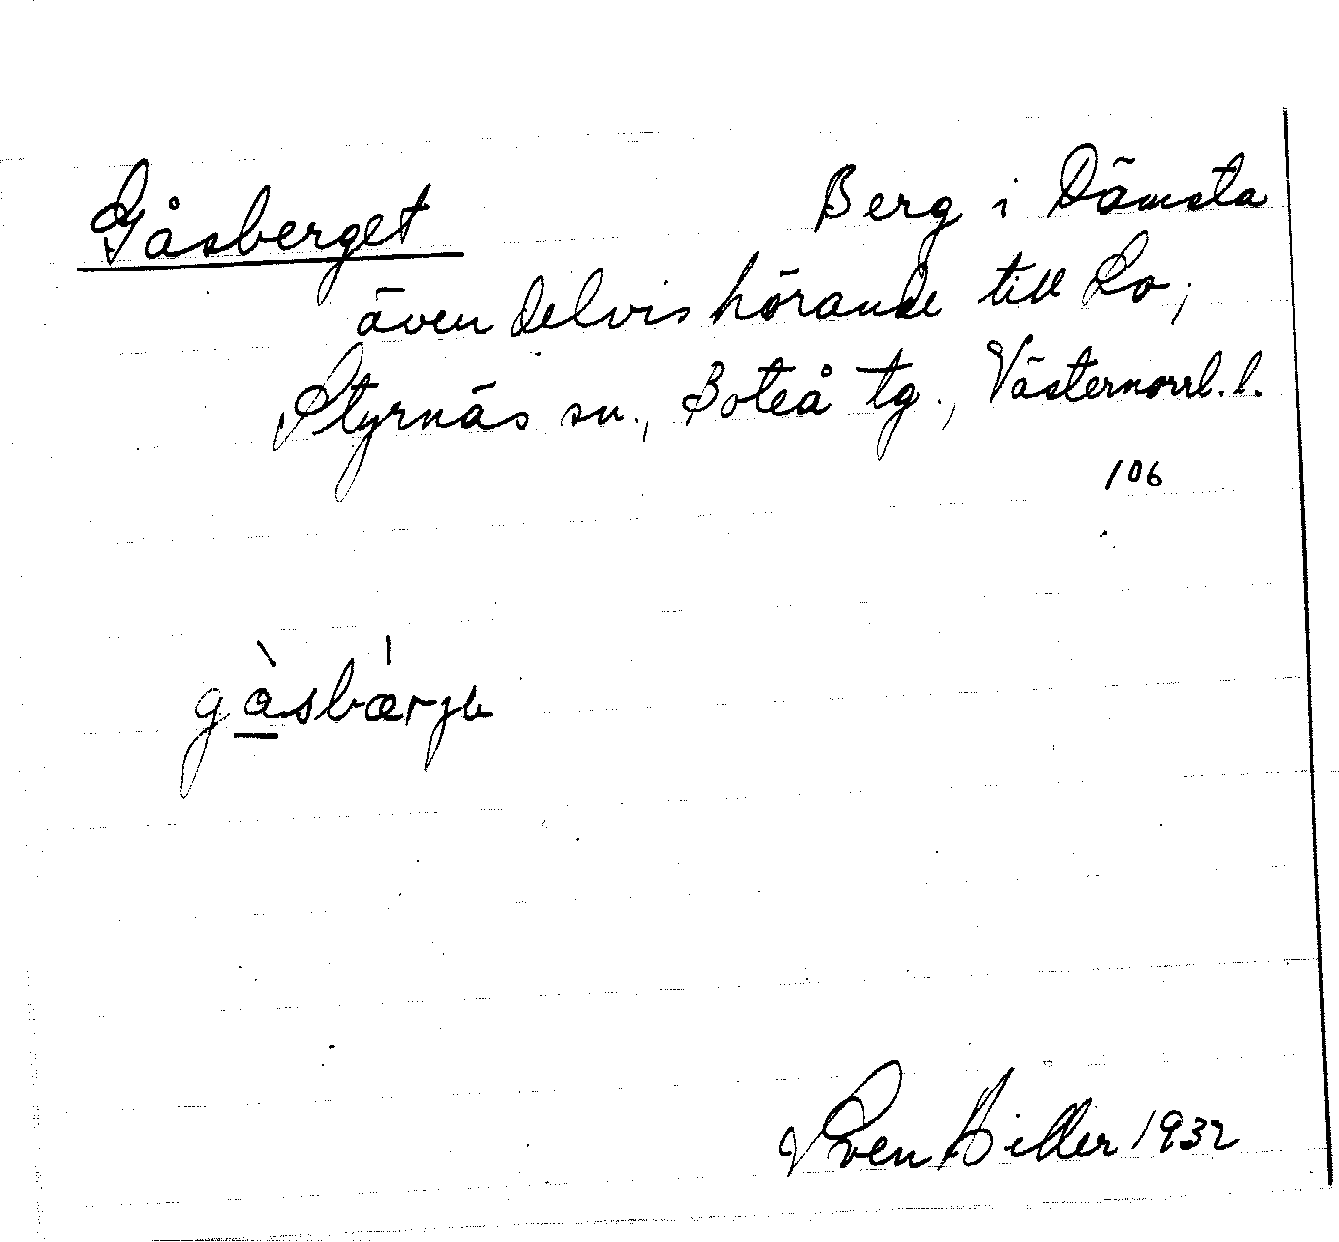 Gåsberget Berg i Dämsta
även delvis hörande till Lo,
Styrnäs sn., Boteå tg., Västernorrl. l.
106
gàsbærjə
Sven Hiller 1932